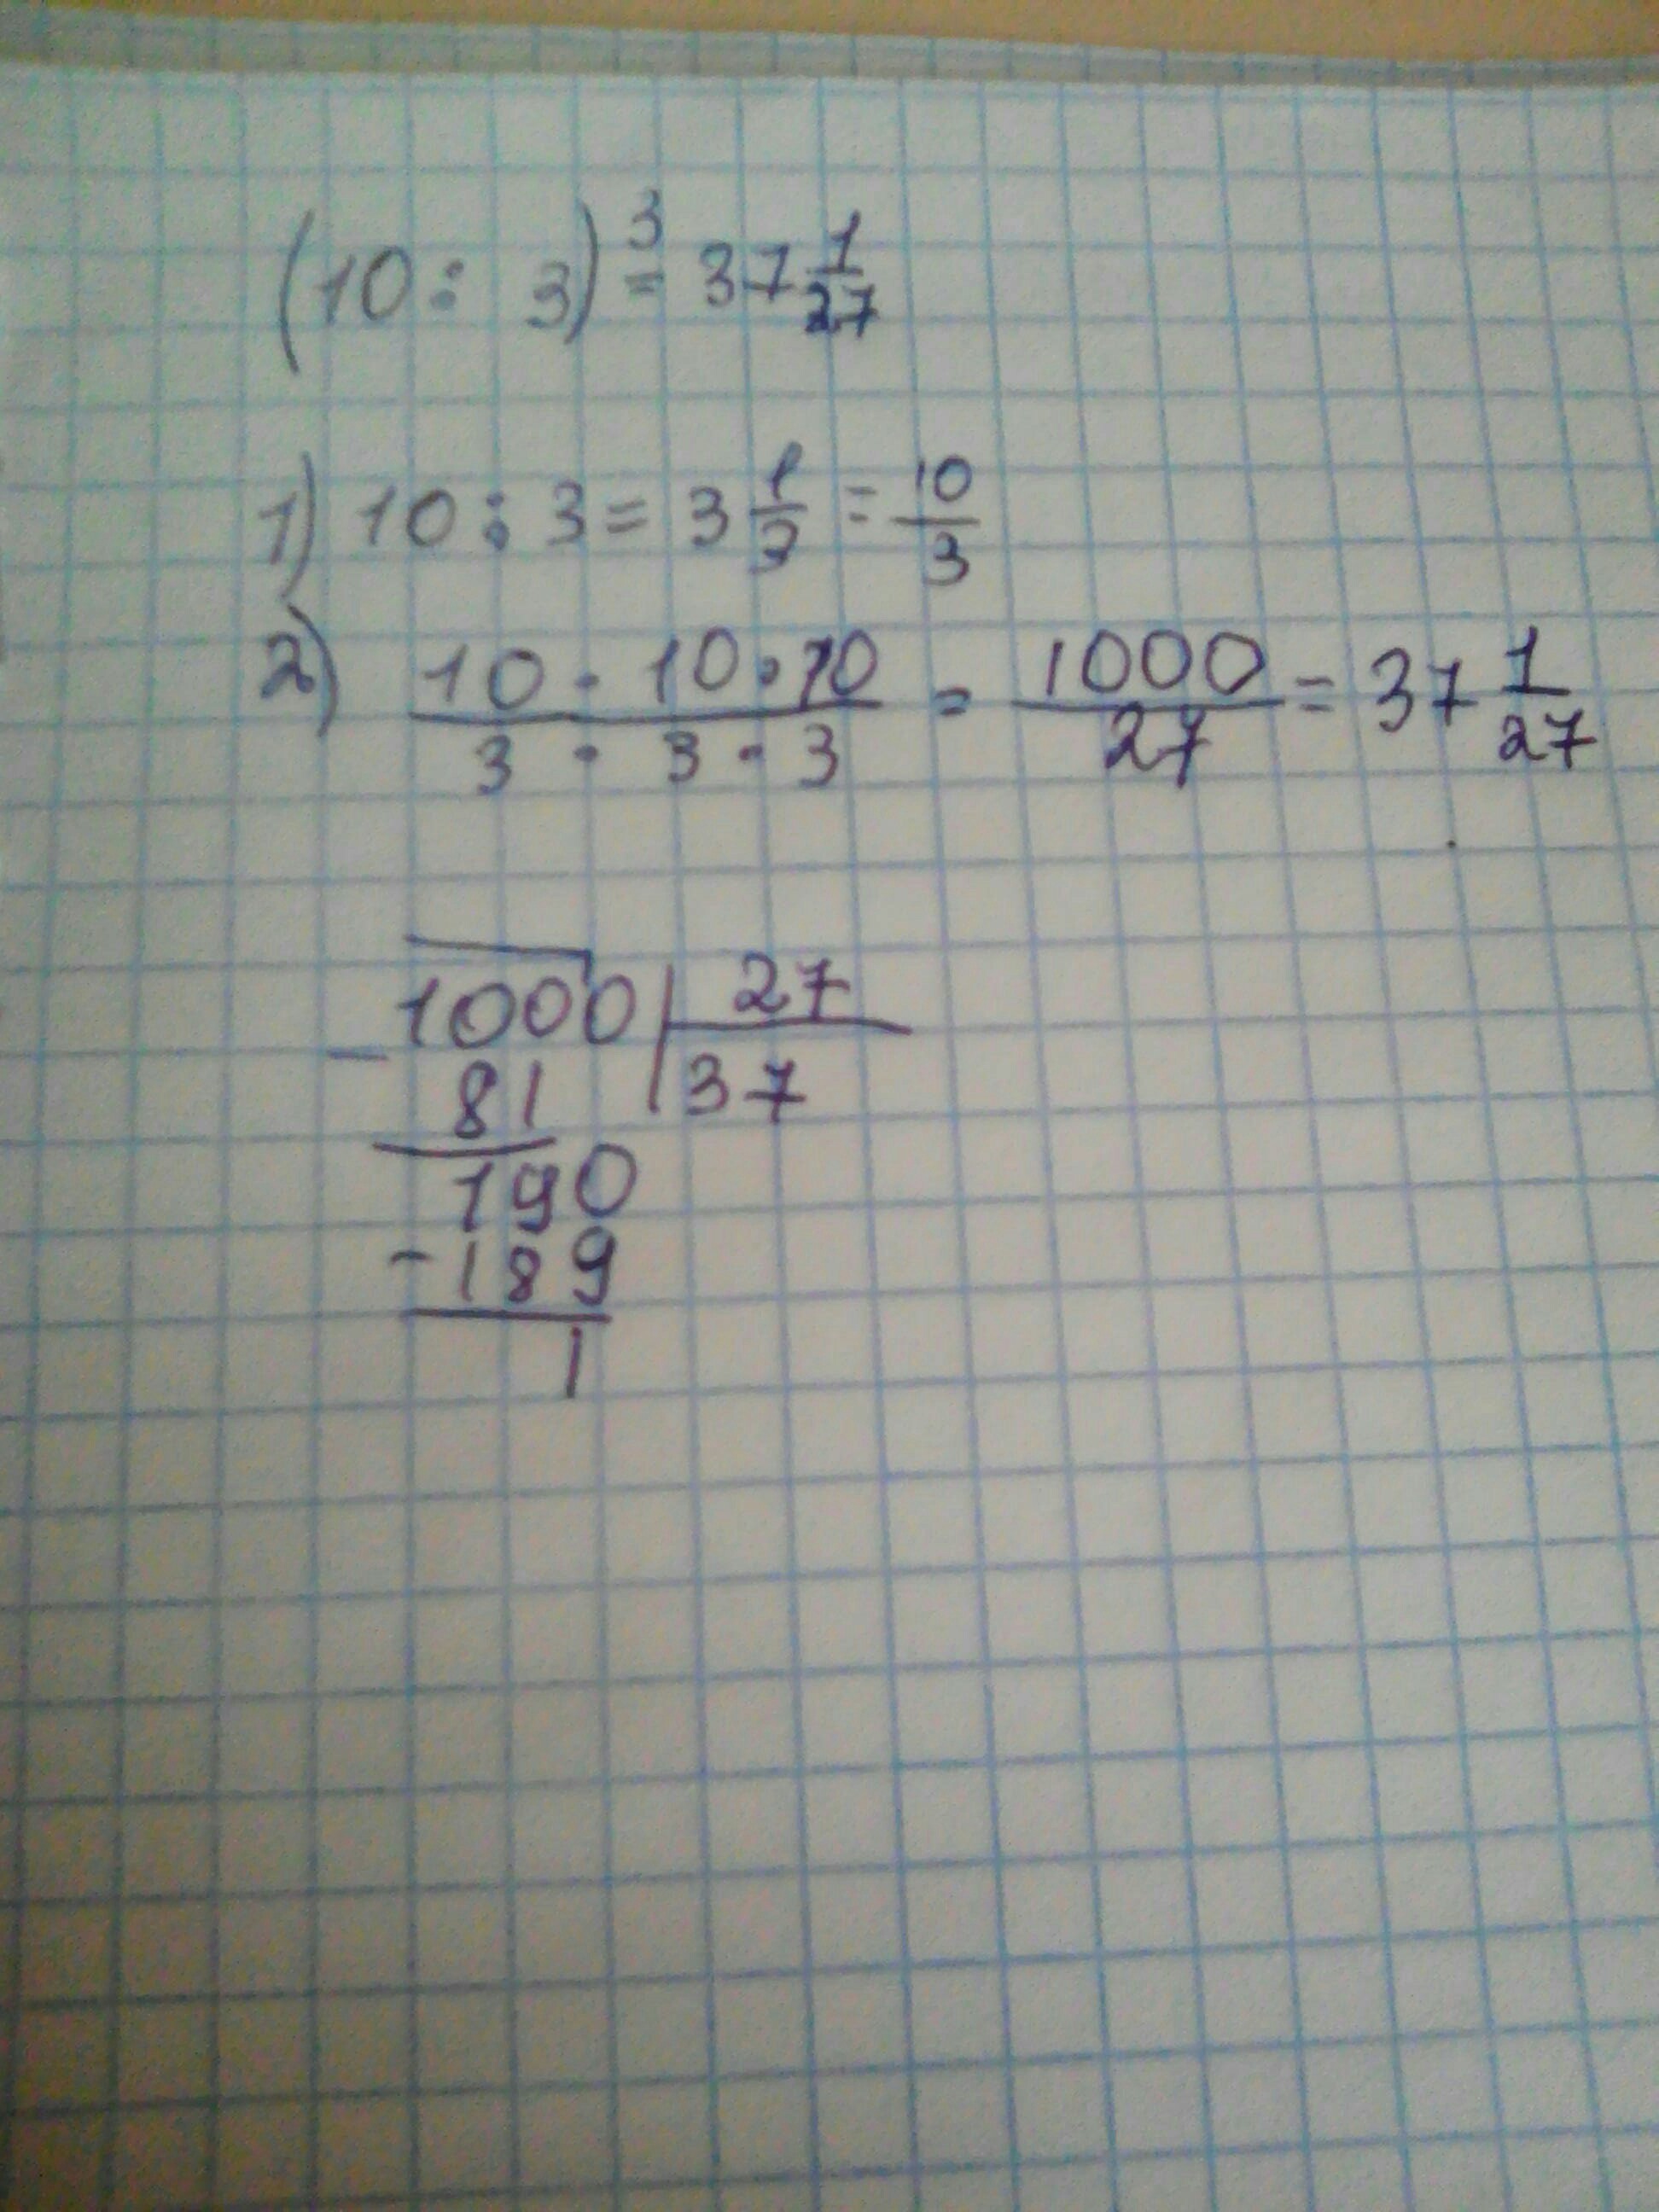 (10 : 3)³ = 37 1/27
1) 10 : 3 = 3 1/3 = 10/3
2) 10 · 10 · 10 / 3 · 3 · 3 = 1000/27 = 37 1/27
1000 | 27
− 81 | 37
190
− 189
1